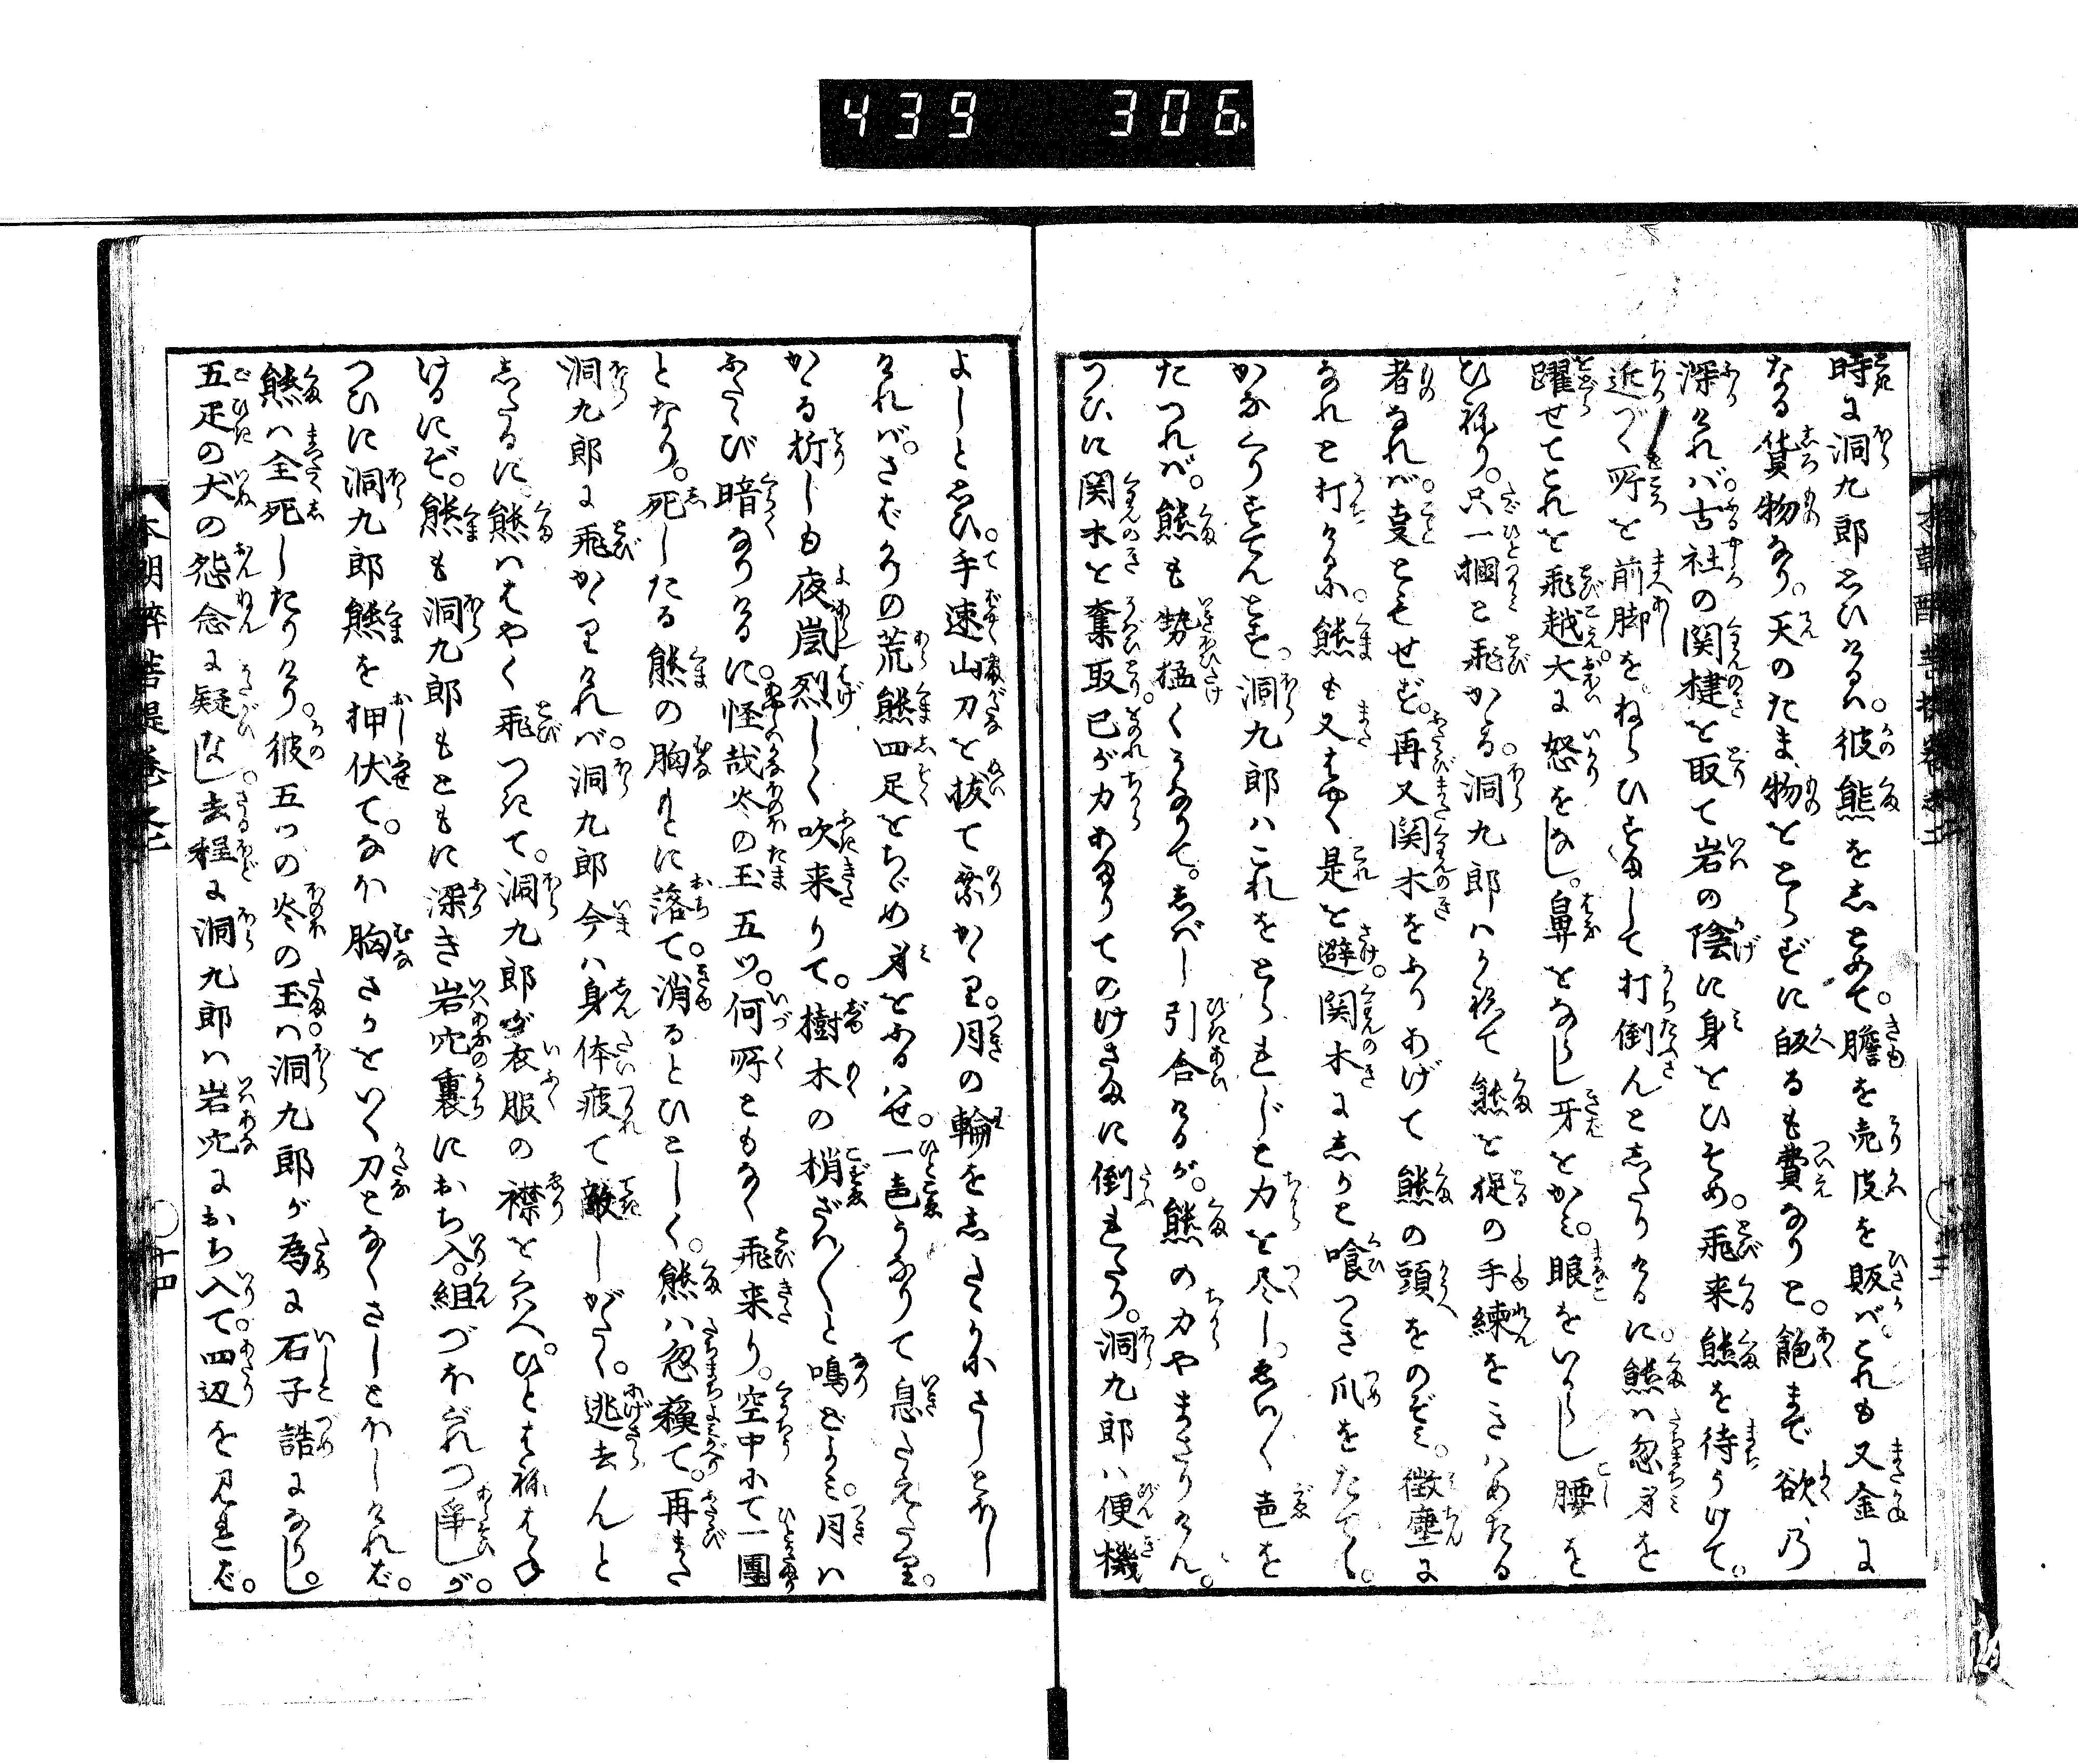 439 306
時に洞九郎おもひけるハ。彼熊をしとめて。膽を売皮を販バ。これも又金に
なる貨物なり。天のたま物をとらずに皈るも費なりと。飽まで欲乃
深けれバ古社の関揵を取て岩の陰に身をひそめ。飛来熊を待うけて。
近づく所を前脚をねらひすまして打倒んとしたりけるに。熊ハ忽身を
躍せてこれを飛越大に怒をなし。鼻をならし牙をかミ。眼をいからし腰を
ひねり。只一掴と飛かゝる。洞九郎ハかねて熊を捉の手練をきハめたる
者なれバ事ともせず。再又関木をふりあげて熊の頭をのぞミ。微塵に
なれと打けるに。熊も又はやく是を避。関木にしかと喰つき爪をたてゝ。
かなぐりすてんとす。洞九郎ハこれをとられじと力を尽し。ゑい〳〵声を
たつれバ。熊も勢猛くうなりて。しばし引合けるが。熊の力やまさりけん。
つひに関木を奪取己が力あまりてのけさまに倒れたり。洞九郎ハ便機
よしと思ひ。手速山刀を抜て乗かゝり。月の輪をしたゝかにさしとほし
けれバ。さばかりの荒熊四足をちゞめ身をふるハせ。一声うなりて息たえたり。
かゝる折しも夜嵐烈しく吹来りて。樹木の梢ざハ〳〵と鳴どよミ。月ハ
ふたゝび暗なりけるに。怪哉火の玉五ツ。何所ともなく飛来り。空中にて一團
となり。死したる熊の胸もとに落て。消るとひとしく。熊ハ忽穌て。再また
洞九郎に飛かゝりけれバ。洞九郎今ハ身体疲て敵しがたく。逃去んと
したるに。熊ハはやく飛つきて。洞九郎が衣服の襟をくハへ。ひとはねはね
けるにぞ。熊も洞九郎もともに深き岩穴裏におち入。組づほぐれつ爭しが。
つひに洞九郎熊を押伏て。なほ胸さかをいく刀となくさしとほしけれバ。
熊ハ全死したりけり。彼五ツの火の玉ハ洞九郎が為に石子詰になりし。
五疋の犬の怨念に疑なし。去程に洞九郎ハ岩穴におち入て。四辺を見れば。
本朝酔菩提巻之二
〇十四